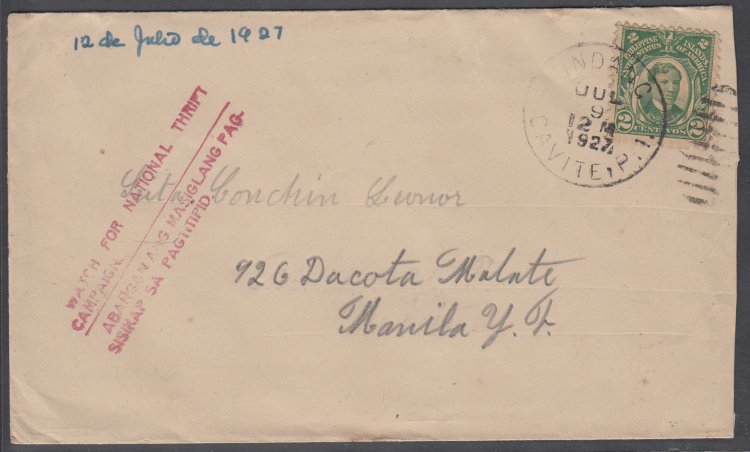 12 de Julio de 1927
WATCH FOR NATIONAL THRIFT
CAMPAIGN.
ABANGAN ANG MASIGLANG PAG.
SISIKAP SA PAGTITIPID
INDANG
JUL
9
12 M
1927
CAVITE, P.I.
2 2
PHILIPPINE ISLANDS
UNITED STATES OF AMERICA
2 CENTAVOS 2
Srta. Conchin Leonor
926 Dacota Malate
Manila Y. F.